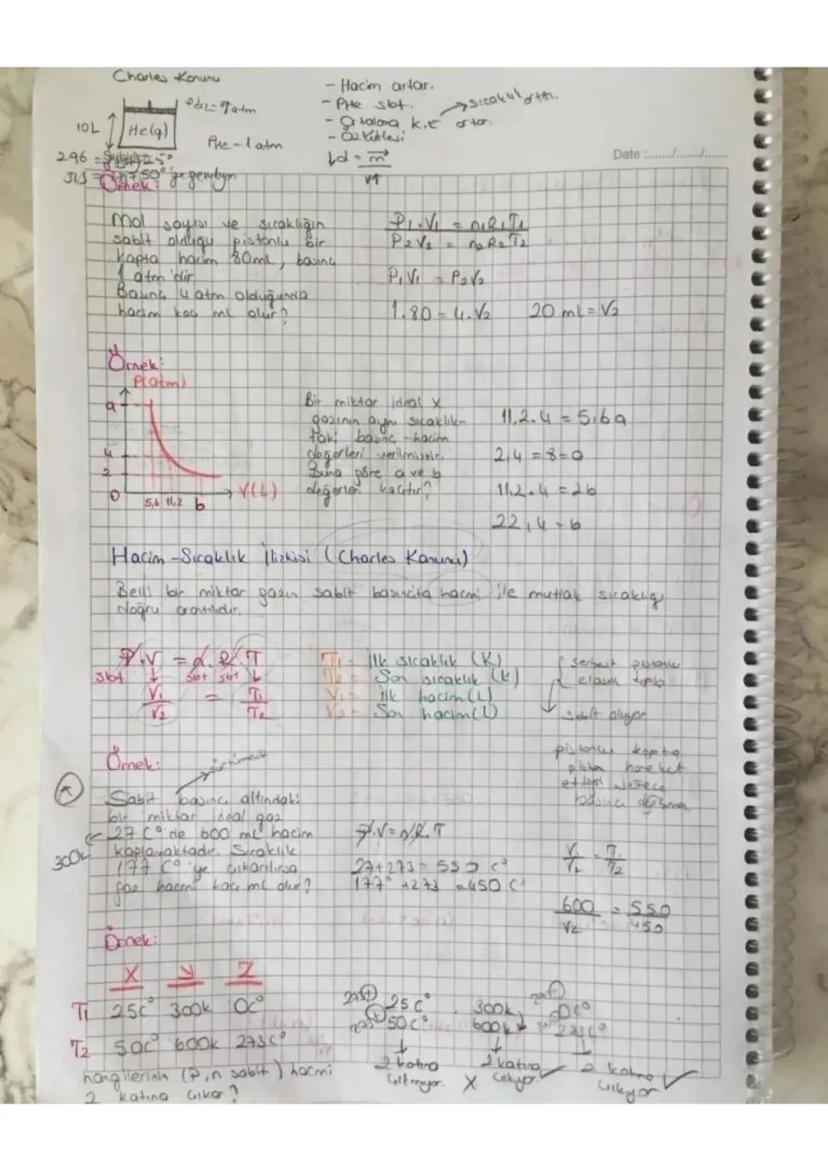 Charles Konunu
- Hacim artar.
- PHe sbt.
sıcaklık artar.
- Ortalama k.E artar.
- Özkütlesi
10L
He(g)
PHe = 1 atm
d = m
V↑
Date:
Örnek:
Mol sayısı ve sıcaklığın
sabit olduğu pistonlu bir
kapta hacim 80ml, basınç
1 atm'dir.
Basınç 4 atm olduğunda
hacim kaç ml olur?
P1.V1 = n1R1T1
P2V2 = n2R2T2
P1V1 = P2V2
1.80 = 4.V2 20 mL = V2
Örnek:
P(atm)
a
4
2
0
5,6 11,2 b
V(L)
Bir miktar ideal X
gazının aynı sıcaklık-
taki basınç-hacim
değerleri verilmiştir.
Buna göre a ve b
değerleri kaçtır?
11,2.4 = 5,6a
2,4 = 8=a
11,2.4 = 2b
22,4 = b
Hacim-Sıcaklık İlişkisi (Charles Kanunu)
Belli bir miktar gazın sabit basınçta hacmi ile mutlak sıcaklığı
doğru orantılıdır.
P.V = n.R.T
sbt sbt sbt
V1 = T1
V2 T2
T1 = İlk sıcaklık (K)
T2 = Son sıcaklık (K)
V1 = İlk hacim (L)
V2 = Son hacim (L)
serbest pistonlu
elastik
sabit
pistonlu kapta
piston hareket
basınç
Örnek:
Sabit basınç altındaki
bir miktar ideal gaz
27 C° de 600 ml hacim
kaplamaktadır. Sıcaklık
177 C° ye çıkarılırsa
gaz hacmi kaç ml olur?
300k
P.V = n.R.T
27+273 = 550 C°
177° +273 = 450 C°
V1 = T1
V2 T2
600 = 550
V2 450
Örnek:
X Y Z
T1 25C° 300k 0C°
T2 50C° 600k 273C°
hangilerinin (P,n sabit) hacmi
2 katına çıkar?
25C°
50C°
2 katına
çıkmıyor. X
300k
600k
2 katına
çıkıyor.
0C°
273C°
2 katına
çıkıyor